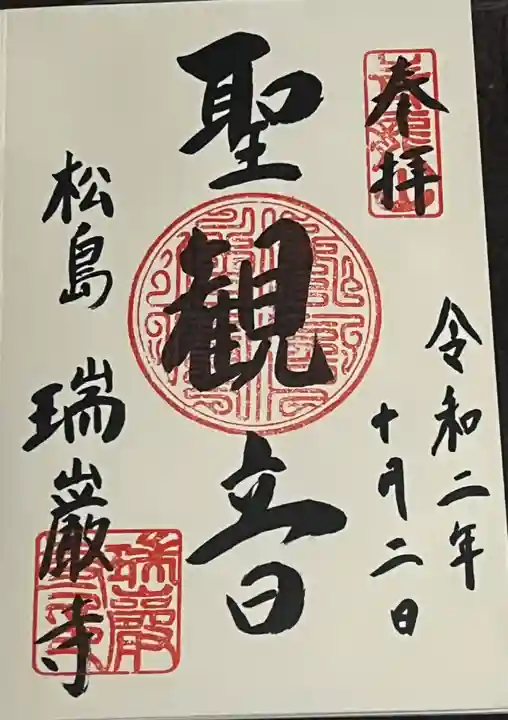 奉拝
令和二年
十月二日
聖観音
松島 瑞巌寺
瑞巌